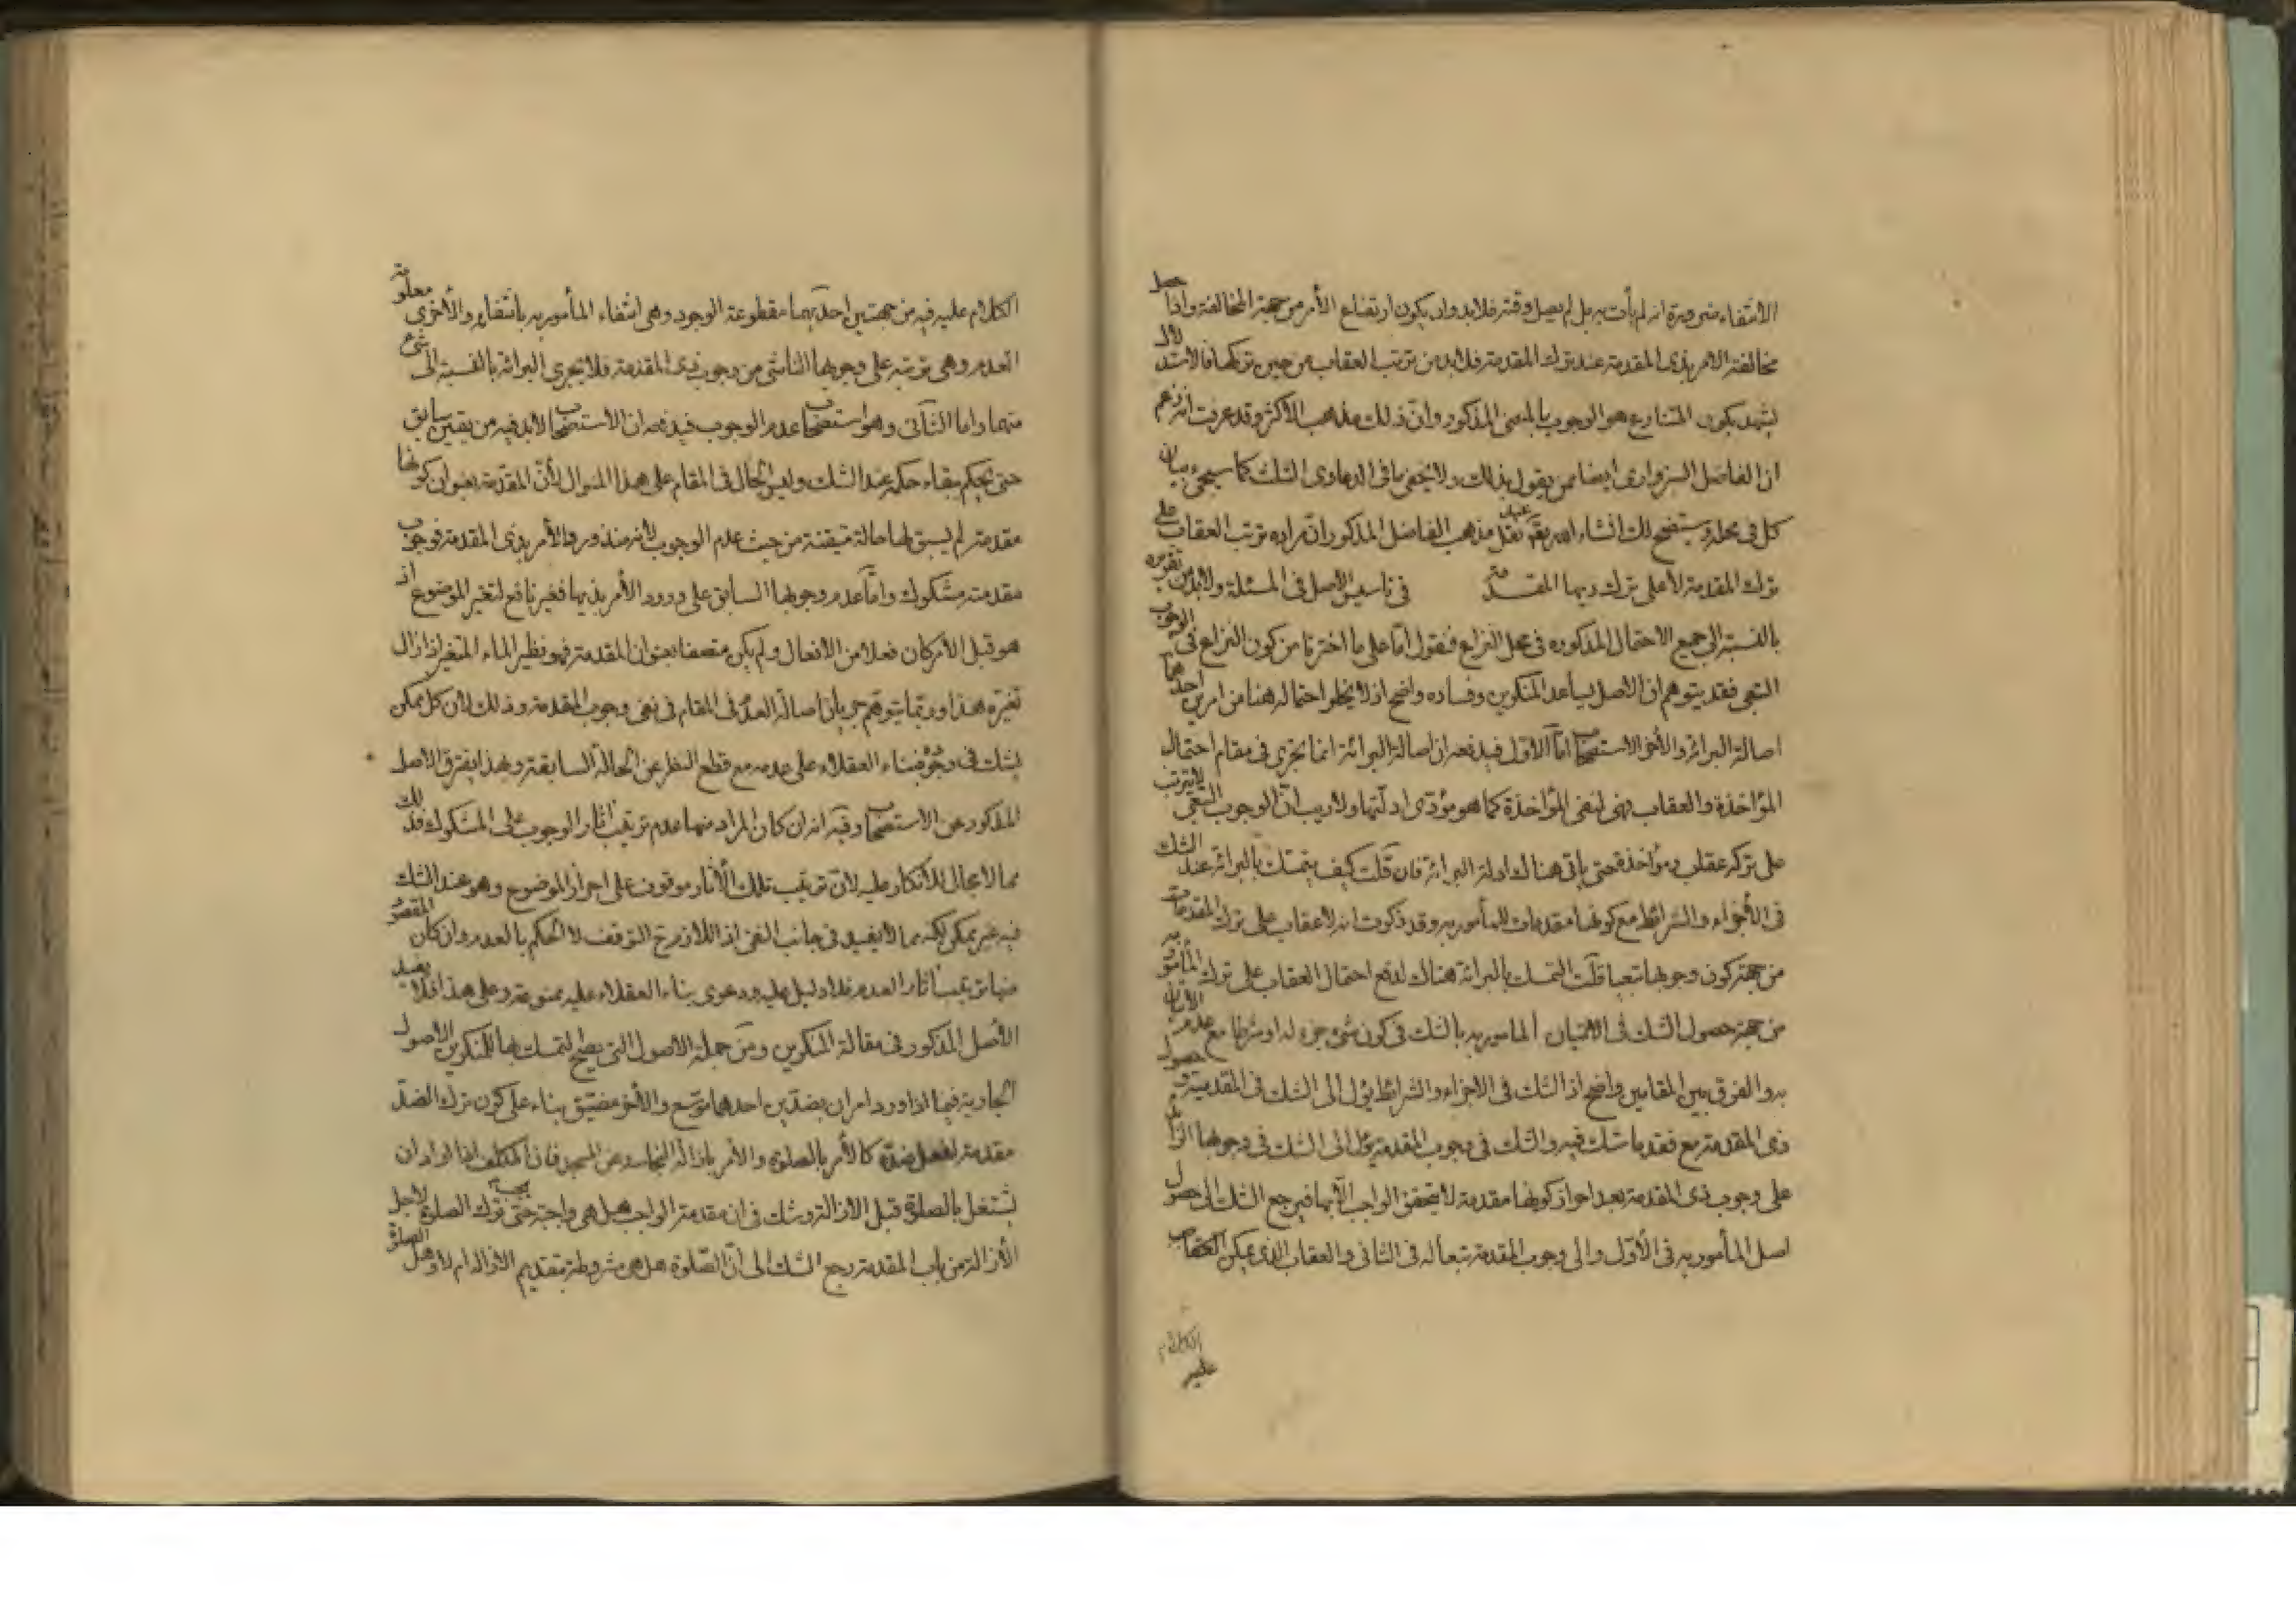 الانتفاء ضرورة انه لم يأت به بل لم يصل وقته فلابد وان يكون ارتفاع الأمر من جهة المخالفة واذا حصل
مخالفة الامر بذى المقدمة عند ترك المقدمة فلابد من ترتب العقاب من حين تركها فالاستدلال
يشهد بكون المتنازع هو الوجوب بالمعنى المذكور وانّ ذلك مذهب الأكثر وقد عرفت انه زعم
ان الفاضل السبزوارى ايضا ممن يقول بذلك ولا يخفى ما فى الدعاوى الثلث كما سيجىء بيان
كل فى محله وستضح لك انشاء الله بقه عند نقل مذهب الفاضل المذكور انّ مراده ترتب العقاب على
ترك المقدمة لا على ترك ذيها المقدمة فى تاسيس الاصل فى المسئلة ولابد من تقريره
بالنسبة الى جميع الاحتمال المذكوره فى محل النزاع فنقول امّا على ما اخترنا من كون النزاع فى الوجوب
التبعى فقد يتوهم ان الاصل يساعد المنكرين وفساده واضح اذ لا يخلو احتماله هنا من امرين احدهما
اصالة البرائة والأخر الاستصحاب امّا الاوّل فيدفعه ان اصالة البرائة انما تجرى فى مقام احتمال
المؤاخذة والعقاب فهى لنفى المؤاخذة كما هو مؤدّى ادلّتها ولا ريب انّ الوجوب التبعى لا يترتب
على تركه عقاب ومؤاخذة حتى يأتى هناك ادلة البرائة فان قلت كيف يتمسّك بالبرائة عند الشك
فى الأجزاء والشرائط مع كونها مقدمات للمأمور به وقد ذكرت انه لا عقاب على ترك المقدمات
من جهة كون وجوبها تبعيا قلت التمسك بالبرائة هناك لدفع احتمال العقاب على ترك المأمور به
من جهة حصول الشك فى الاتيان المامور به بالشك فى كون شىء جزء له او شرطا مع عدم الاتيان
به والفرق بين المقامين واضح اذ الشك فى الاجزاء والشرائط يؤل الى الشك فى المقدمية وحصول
ذى المقدمة مع فقد ما شك فيه والشك فى وجوب المقدمة يؤل الى الشك فى وجوبها الزائد
على وجوب ذى المقدمة بعد احراز كونها مقدمة لا يتحقق الواجب الّا بها فيرجع الشك الى حصول
اصل المأمور به فى الأوّل والى وجوب المقدمة تبعا له فى الثانى والعقاب الذى يمكن العقاب
الكلام
عليه
الكلام عليه فيه من جهتين احدّيهما مقطوعة الوجود وهى انتفاء المأمور به بانتفائه والأخرى معلومة
العدم وهى ترتبه على وجوبها الناشى من وجوب ذى المقدمة فلا تجرى البرائة بالنسبة الى شىء
منهما واما الثّانى وهو استصحاب عدم الوجوب فيدفعه ان الاستصحاب لابد فيه من يقين سابق
حتى يحكم ببقاء حكمه عند الشك وليس الحال فى المقام على هذا المنوال لأنّ المقدّمة بعنوان كونها
مقدمة لم يسبق لها حالة متيقنة من حيث عدم الوجوب لأنه منذ ورد الأمر بذى المقدمة فوجوب
مقدمته مشكوك وامّا عدم وجوبها السابق على ورود الأمر بذيها فغير نافع لتغير الموضوع اذ
هو قبل الأمر كان فعلا من الأفعال ولم يكن متصفا بعنوان المقدمة فهو نظير الماء المتغير اذا زال
تغيره هذا وربما يتوهم جريان اصالة العدم فى المقام فى نفى وجوب المقدمة وذلك لأن كل ممكن
يشك فى وجوده فبناء العقلاء على عدمه مع قطع النظر عن الحالة السابقة وبهذا يفترق الاصل
المذكور عن الاستصحاب وفيه انه ان كان المراد منها عدم ترتيب اثار الوجوب على المشكوك فذلك
مما لا مجال للأنكار عليه لانّ ترتيب تلك الأثار موقوف على احراز الموضوع وهو عند الشك
فيه غير ممكن لكنه مما لا يفيد فى جانب النفى اذ اللازم ح التوقف لا الحكم بالعدم وان كان المقصود
منها ترتيب اثار العدم فلا دليل عليه ودعوى بناء العقلاء عليه ممنوعة وعلى هذا فلا يفيد
الأصل المذكور فى مقالة المنكرين ومن جملة الاصول التى يصلح لتمسك بها للمنكرين الاصول
الجارية فيما اذا ورد امران بضدّين احدهما موّسع والأخر مضيّق بناء على كون ترك الضدّ
مقدمة لفعل ضدّه كالأمر بالصلوة والأمر بازالة النجاسة عن المسجد فان المكلف اذا اراد ان
يشتغل بالصلوة قبل الازالة وشك فى ان مقدمة الواجب هل هى واجبة حتى يجب ترك الصلوة لاجل
الأزالة من باب المقدمة رجع الشك الى انّ الصّلوة هل هى مشروطة بتقديم الازالة ام لا وهل الصلوة